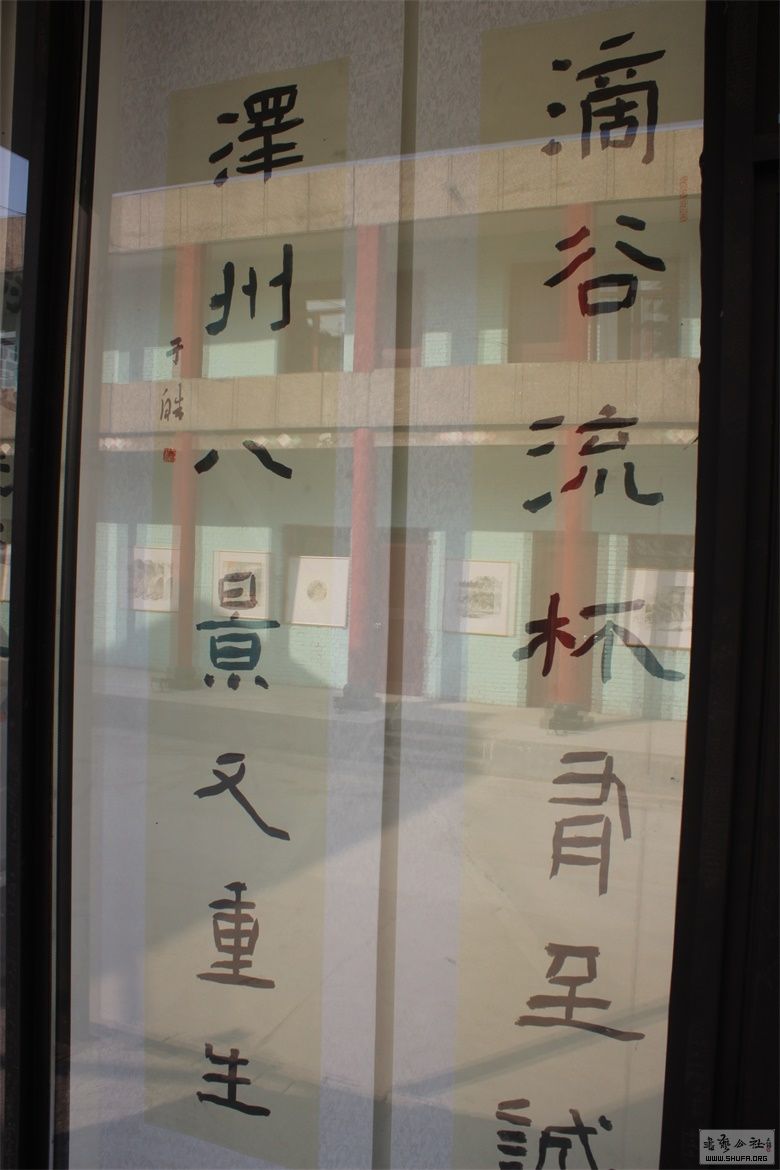 滴谷流杯至誠
澤州八景又重生
于皓
書藝公社
WWW.SHUFA.ORG